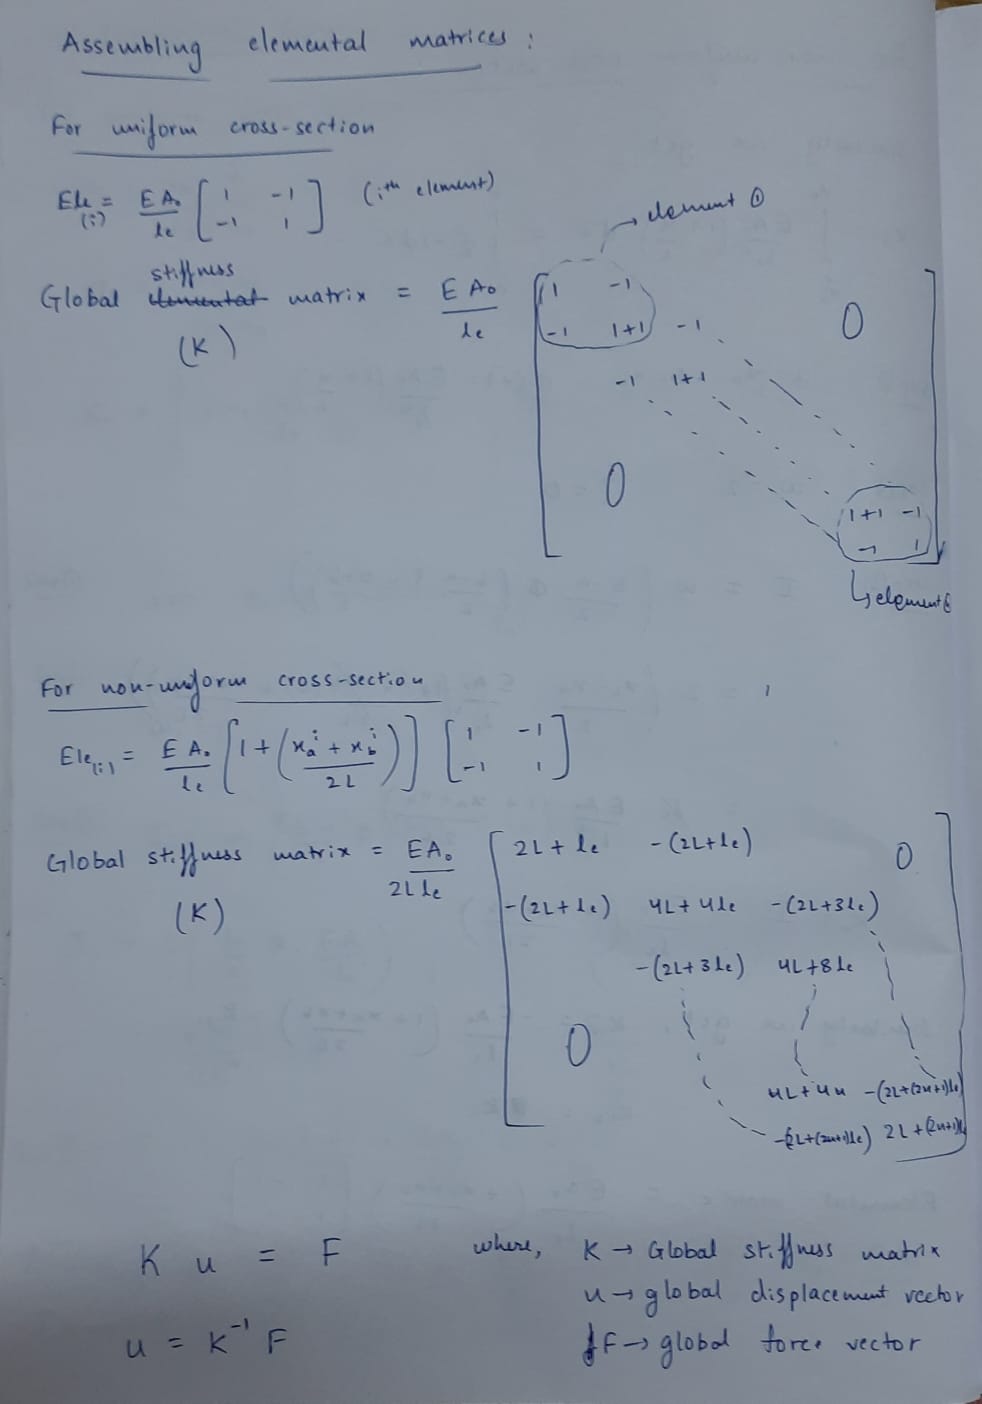 Assembling elemental matrices :
For uniform cross-section
Ele(i) = E A₀ / le [ 1 -1 ; -1 1 ] (iᵗʰ element)
→ element ①
stiffness
Global matrix = E A₀ / le
(K)
1 -1 0
-1 1+1 -1
-1 1+1
0
1+1 -1
-1 1
↳ element
For non-uniform cross-section
Ele(i) = E A₀ / le [ 1 + ( xₐⁱ + x_bⁱ / 2L ) ] [ 1 -1 ; -1 1 ]
Global stiffness matrix = EA₀ / 2L le
(K)
2L + le -(2L+le) 0
-(2L+le) 4L+4le -(2L+3le)
-(2L+3le) 4L+8le
0
4L+4n -(2L+(2n+1)le)
-(2L+(2n+1)le) 2L+(2n+1)
K u = F where, K → Global stiffness matrix
u → global displacement vector
u = K⁻¹ F F → global force vector